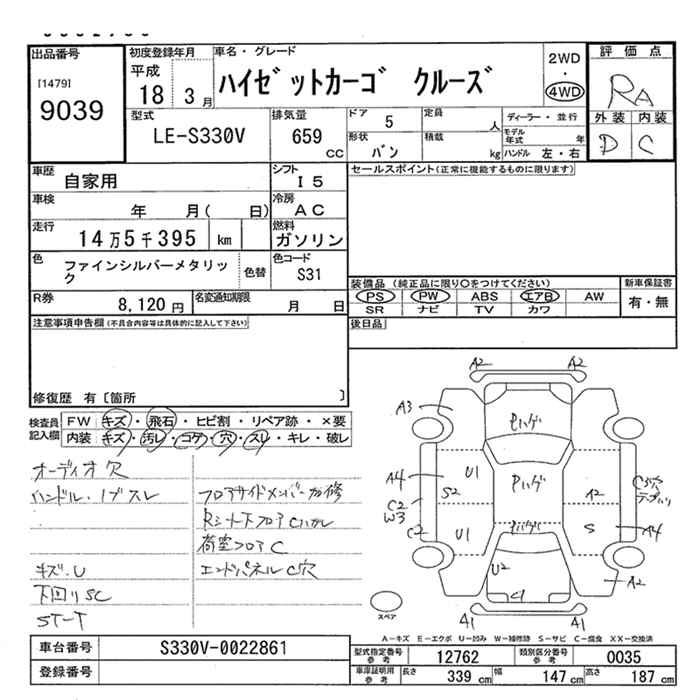 出品番号
[1479]
9039
初度登録年月
平成
18 3月
車名・グレード
ハイゼットカーゴ クルーズ
2WD
・
4WD
評価点
RA
外装 内装
D C
型式
LE-S330V
排気量
659
CC
ドア
5
定員
人
形状
バン
積載
kg
ディーラー・並行
モデル年式 年
ハンドル 左・右
車歴
自家用
シフト
I5
車検
年 月( 日)
冷房
AC
走行
14万5千395 km
燃料
ガソリン
色
ファインシルバーメタリック
色替
色コード
S31
R券
8,120円
名変通知期限
月 日
セールスポイント(正常に機能するものに限ります)
装備品(純正品に限り○をつけてください)
PS PW ABS エアB AW
SR ナビ TV カワ
新車保証書
有・無
後日品
注意事項申告欄(不具合内容等は具体的に記入して下さい)
修復歴 有[箇所 ]
検査員記入欄
FW キズ・飛石・ヒビ割・リペア跡・×要
内装 キズ・汚レ・コゲ・穴・スレ・キレ・破レ
オーディオ穴
ハンドル・1ブスレ
キズ.U
下回りSC
ST-T
フロアサイドメンバー加修
Rシート下フロアCハガレ
荷室フロアC
エンドパネルC穴
A2 A2
A3
ヒハゲ
A4
U1
S2
Pハゲ
A2
C2
W3
C2
U1
S
A4
U2
C1
A2
A1 A1
スペア
A-キズ E-エクボ U-凹み W-補修跡 S-サビ C-腐食 XX-交換済
車台番号
S330V-0022861
登録番号
型式指定番号 参考
12762
類別区分番号 参考
0035
車庫証明用 参考
長さ 339cm
幅 147cm
高さ 187cm